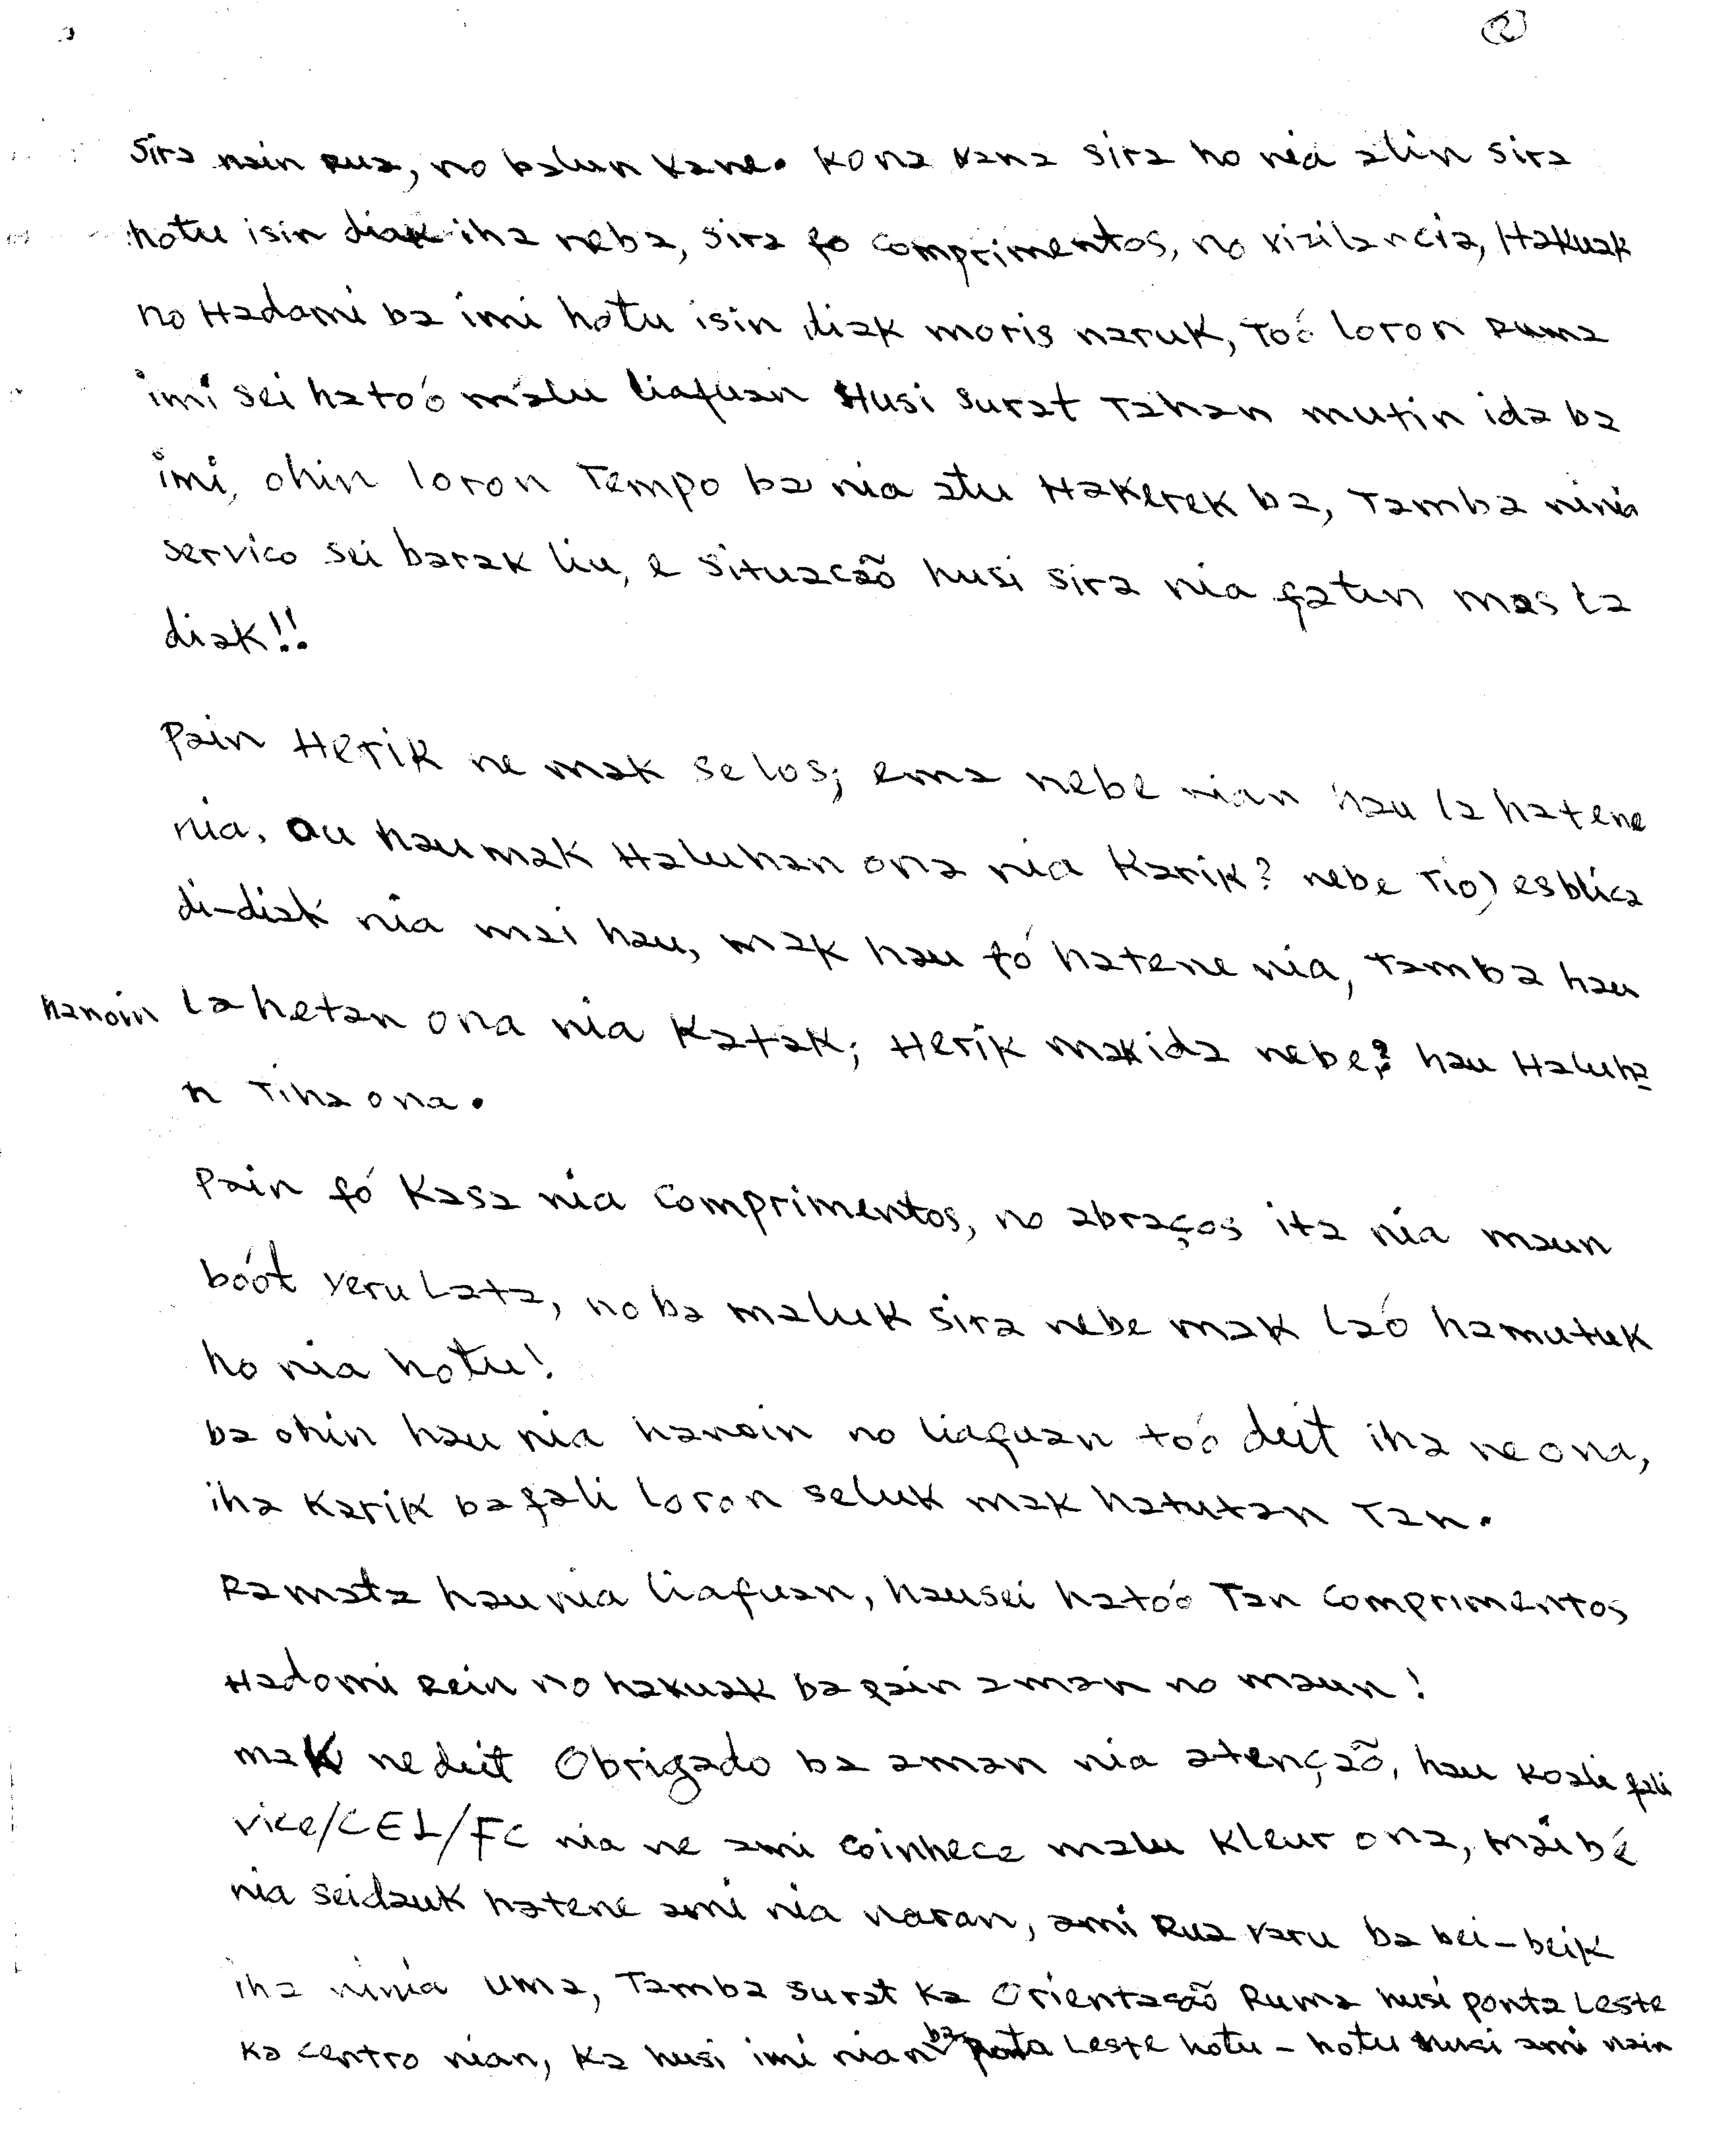 (2)
Sira nain Rua, no balun Kane. Kona Kana sira ho nia alin sira
hotu isin diak iha neba, sira fo comprimentos, no vizilancia, Hakuak
no Hadomi ba imi hotu isin diak moris naruk, Toó loron Ruma
imi sei hatoó malu liafuan Husi surat Tahan mutin ida ba
imi, ohin loron Tempo ba nia atu Hakerek ba, Tamba ninia
servico sei barak liu, e situacaõ husi sira nia fatin mos la
diak!!
Pain Herik ne mak se los; ema nebe nian hau la hatene
nia. Ou hau mak Haluhan ona nia Karik? nebe Tio) esblica
di-diak nia mai hau, mak hau fó hatene nia, Tamba hau
hanoin la hetan ona nia Katak; Herik mak ida nebe? hau Haluha
n Tiha ona.
Pain fó Kasa nia Comprimentos, no abraços ita nia maun
boót Yeru Lata, no ba maluk sira nebe mak laó hamutuk
ho nia hotu!
ba ohin hau nia hanoin no liafuan toó deit iha ne ona,
iha Karik ba fali loron seluk mak hatutan Tan.
Ramata hau nia liafuan, hau sei hatoó Tan Comprimentos
Hadomi Rein no hakuak ba pain aman no maun!
mak ne deit Obrigado ba aman nia atençaõ, hau koali fali
vice/CEL/FC nia ne ami coinhece malu Kleur ona, maibé
nia seidauk hatene ami nia naran, ami Rua Karu ba bei-beik
iha ninia uma, Tamba surat Ka Orientasaõ Ruma husi ponta Leste
Ka centro nian, Ka husi imi nian ba ponta Leste hotu-hotu husi ami nain